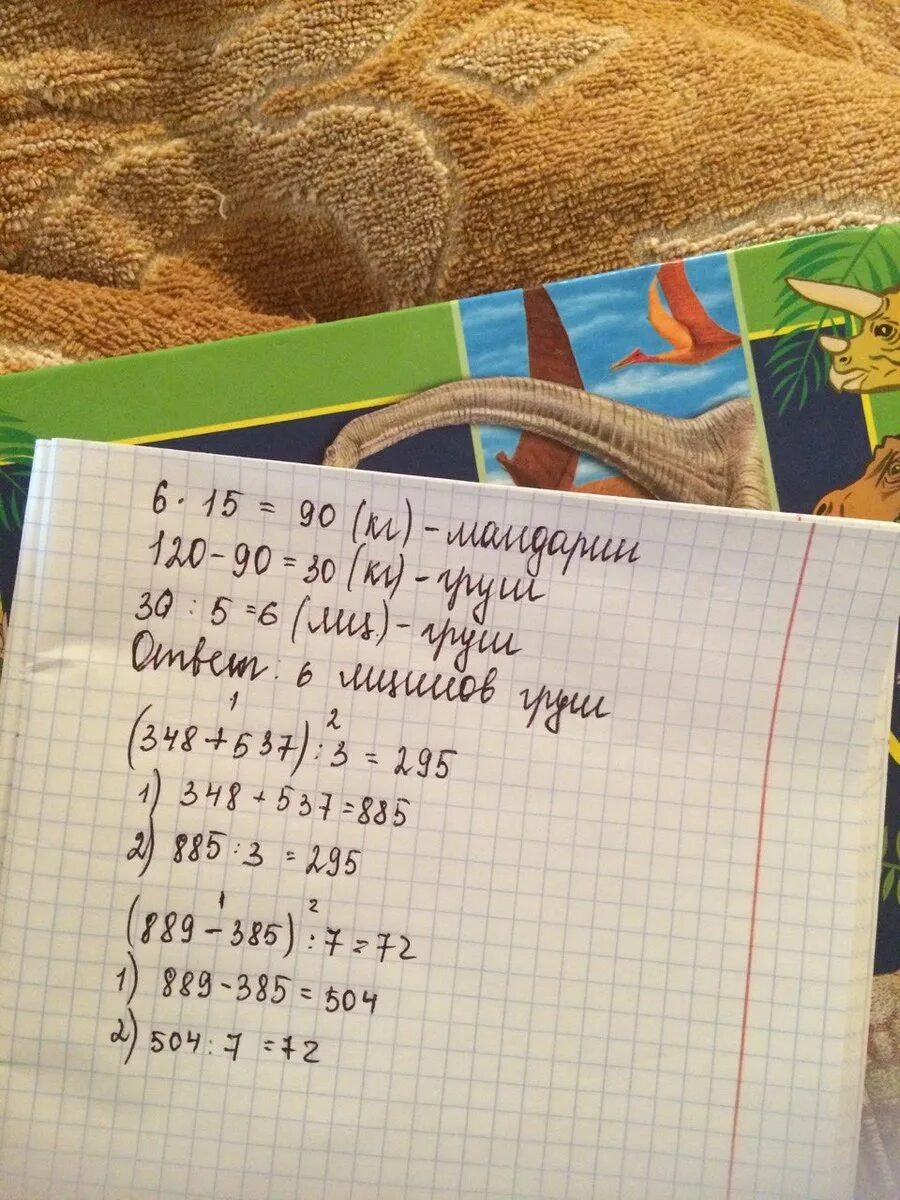 6 · 15 = 90 (кг) - мандарин
120 - 90 = 30 (кг) - груш
30 : 5 = 6 (ящ.) - груш
Ответ: 6 ящиков груш
1 2
(348 + 537) : 3 = 295
1) 348 + 537 = 885
2) 885 : 3 = 295
1 2
(889 - 385) : 7 = 72
1) 889 - 385 = 504
2) 504 : 7 = 72